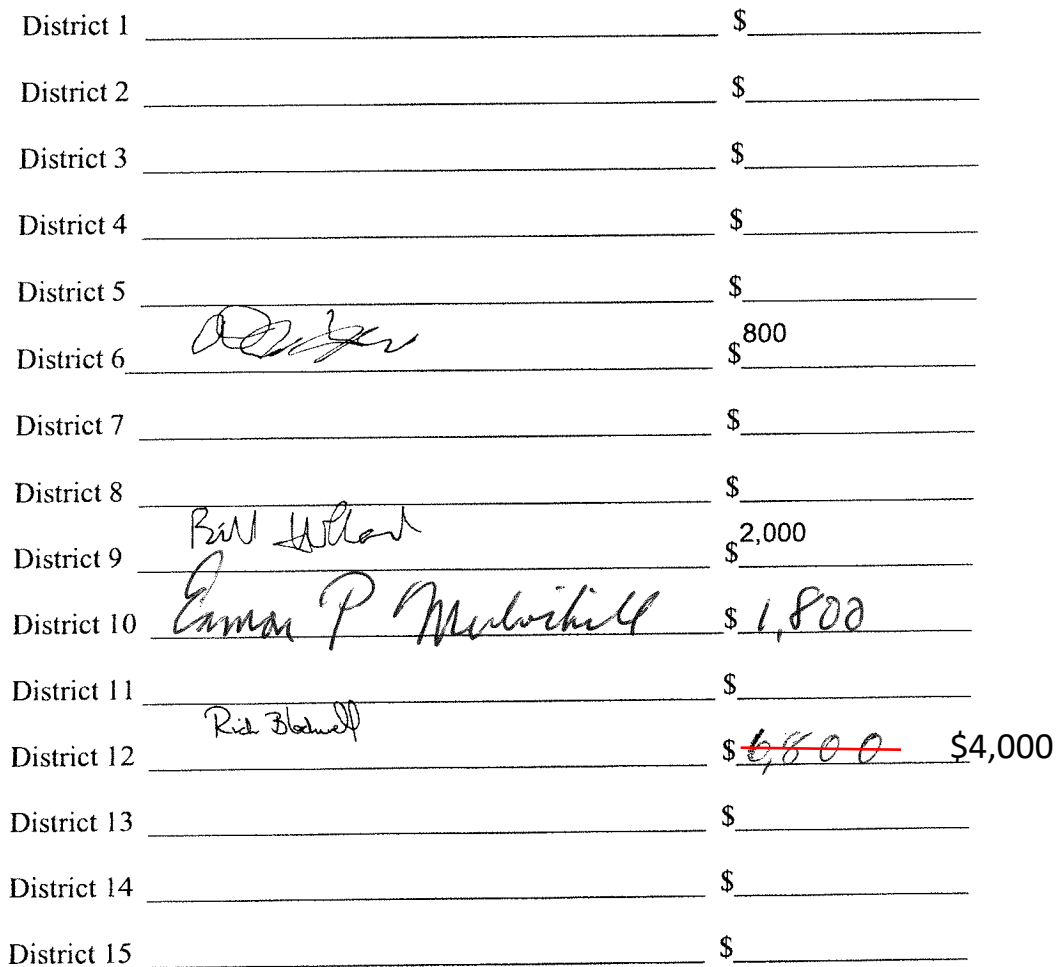 District 1 $
District 2 $
District 3 $
District 4 $
District 5 $
District 6 $ 800
District 7 $
District 8 $
District 9 Bill $ 2,000
District 10 Eamon P Mulvihill $ 1,800
District 11 $
District 12 Rich Blackwell $ 6,800 $4,000
District 13 $
District 14 $
District 15 $